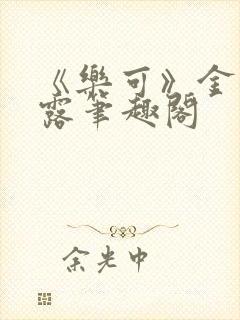 《樂可》金
露筆趣閣
余光中